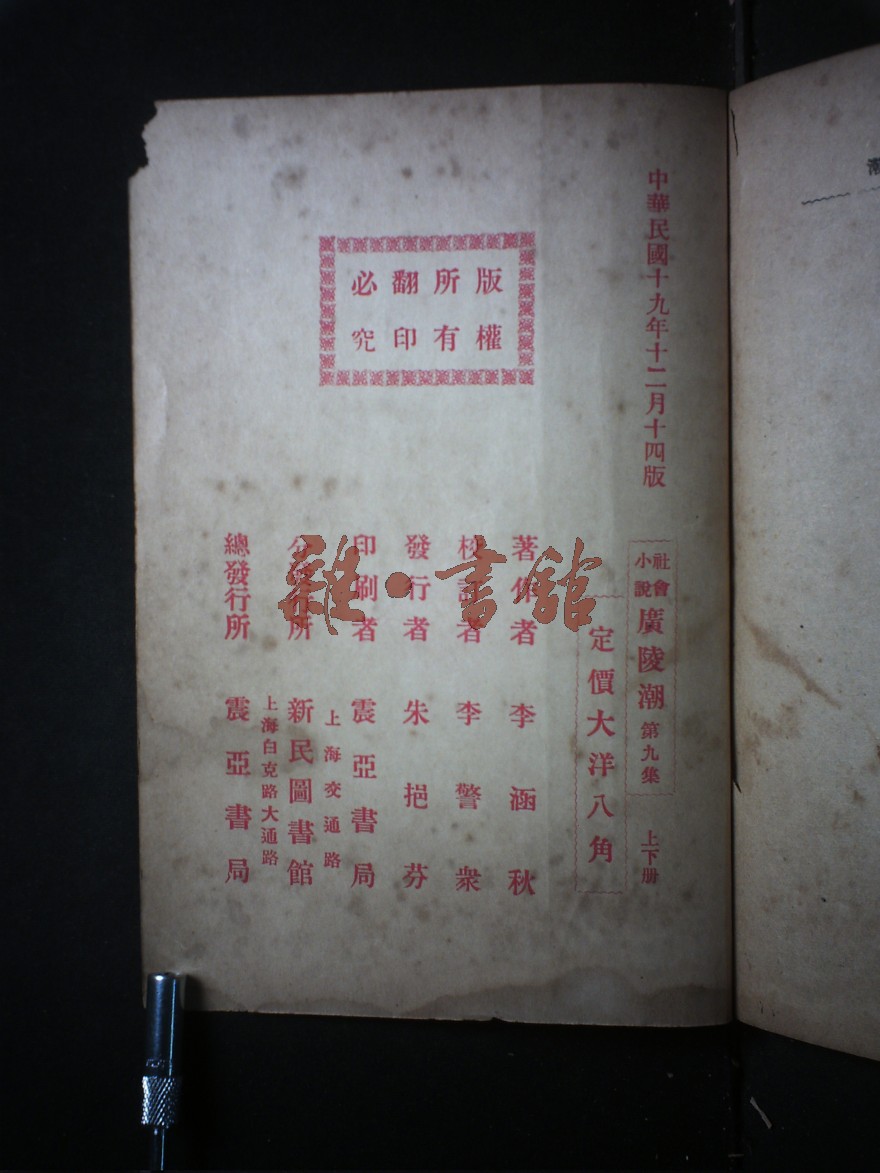 中華民國十九年十二月十四版
社會
小說
廣陵潮
第九集
上下册
定價大洋八角
版權
所有
翻印
必究
著作者 李涵秋
校訂者 李警衆
發行者 朱挹芬
印刷者 震亞書局
上海交通路
分發行所 新民圖書館
上海白克路大通路
總發行所 震亞書局
雜·書館